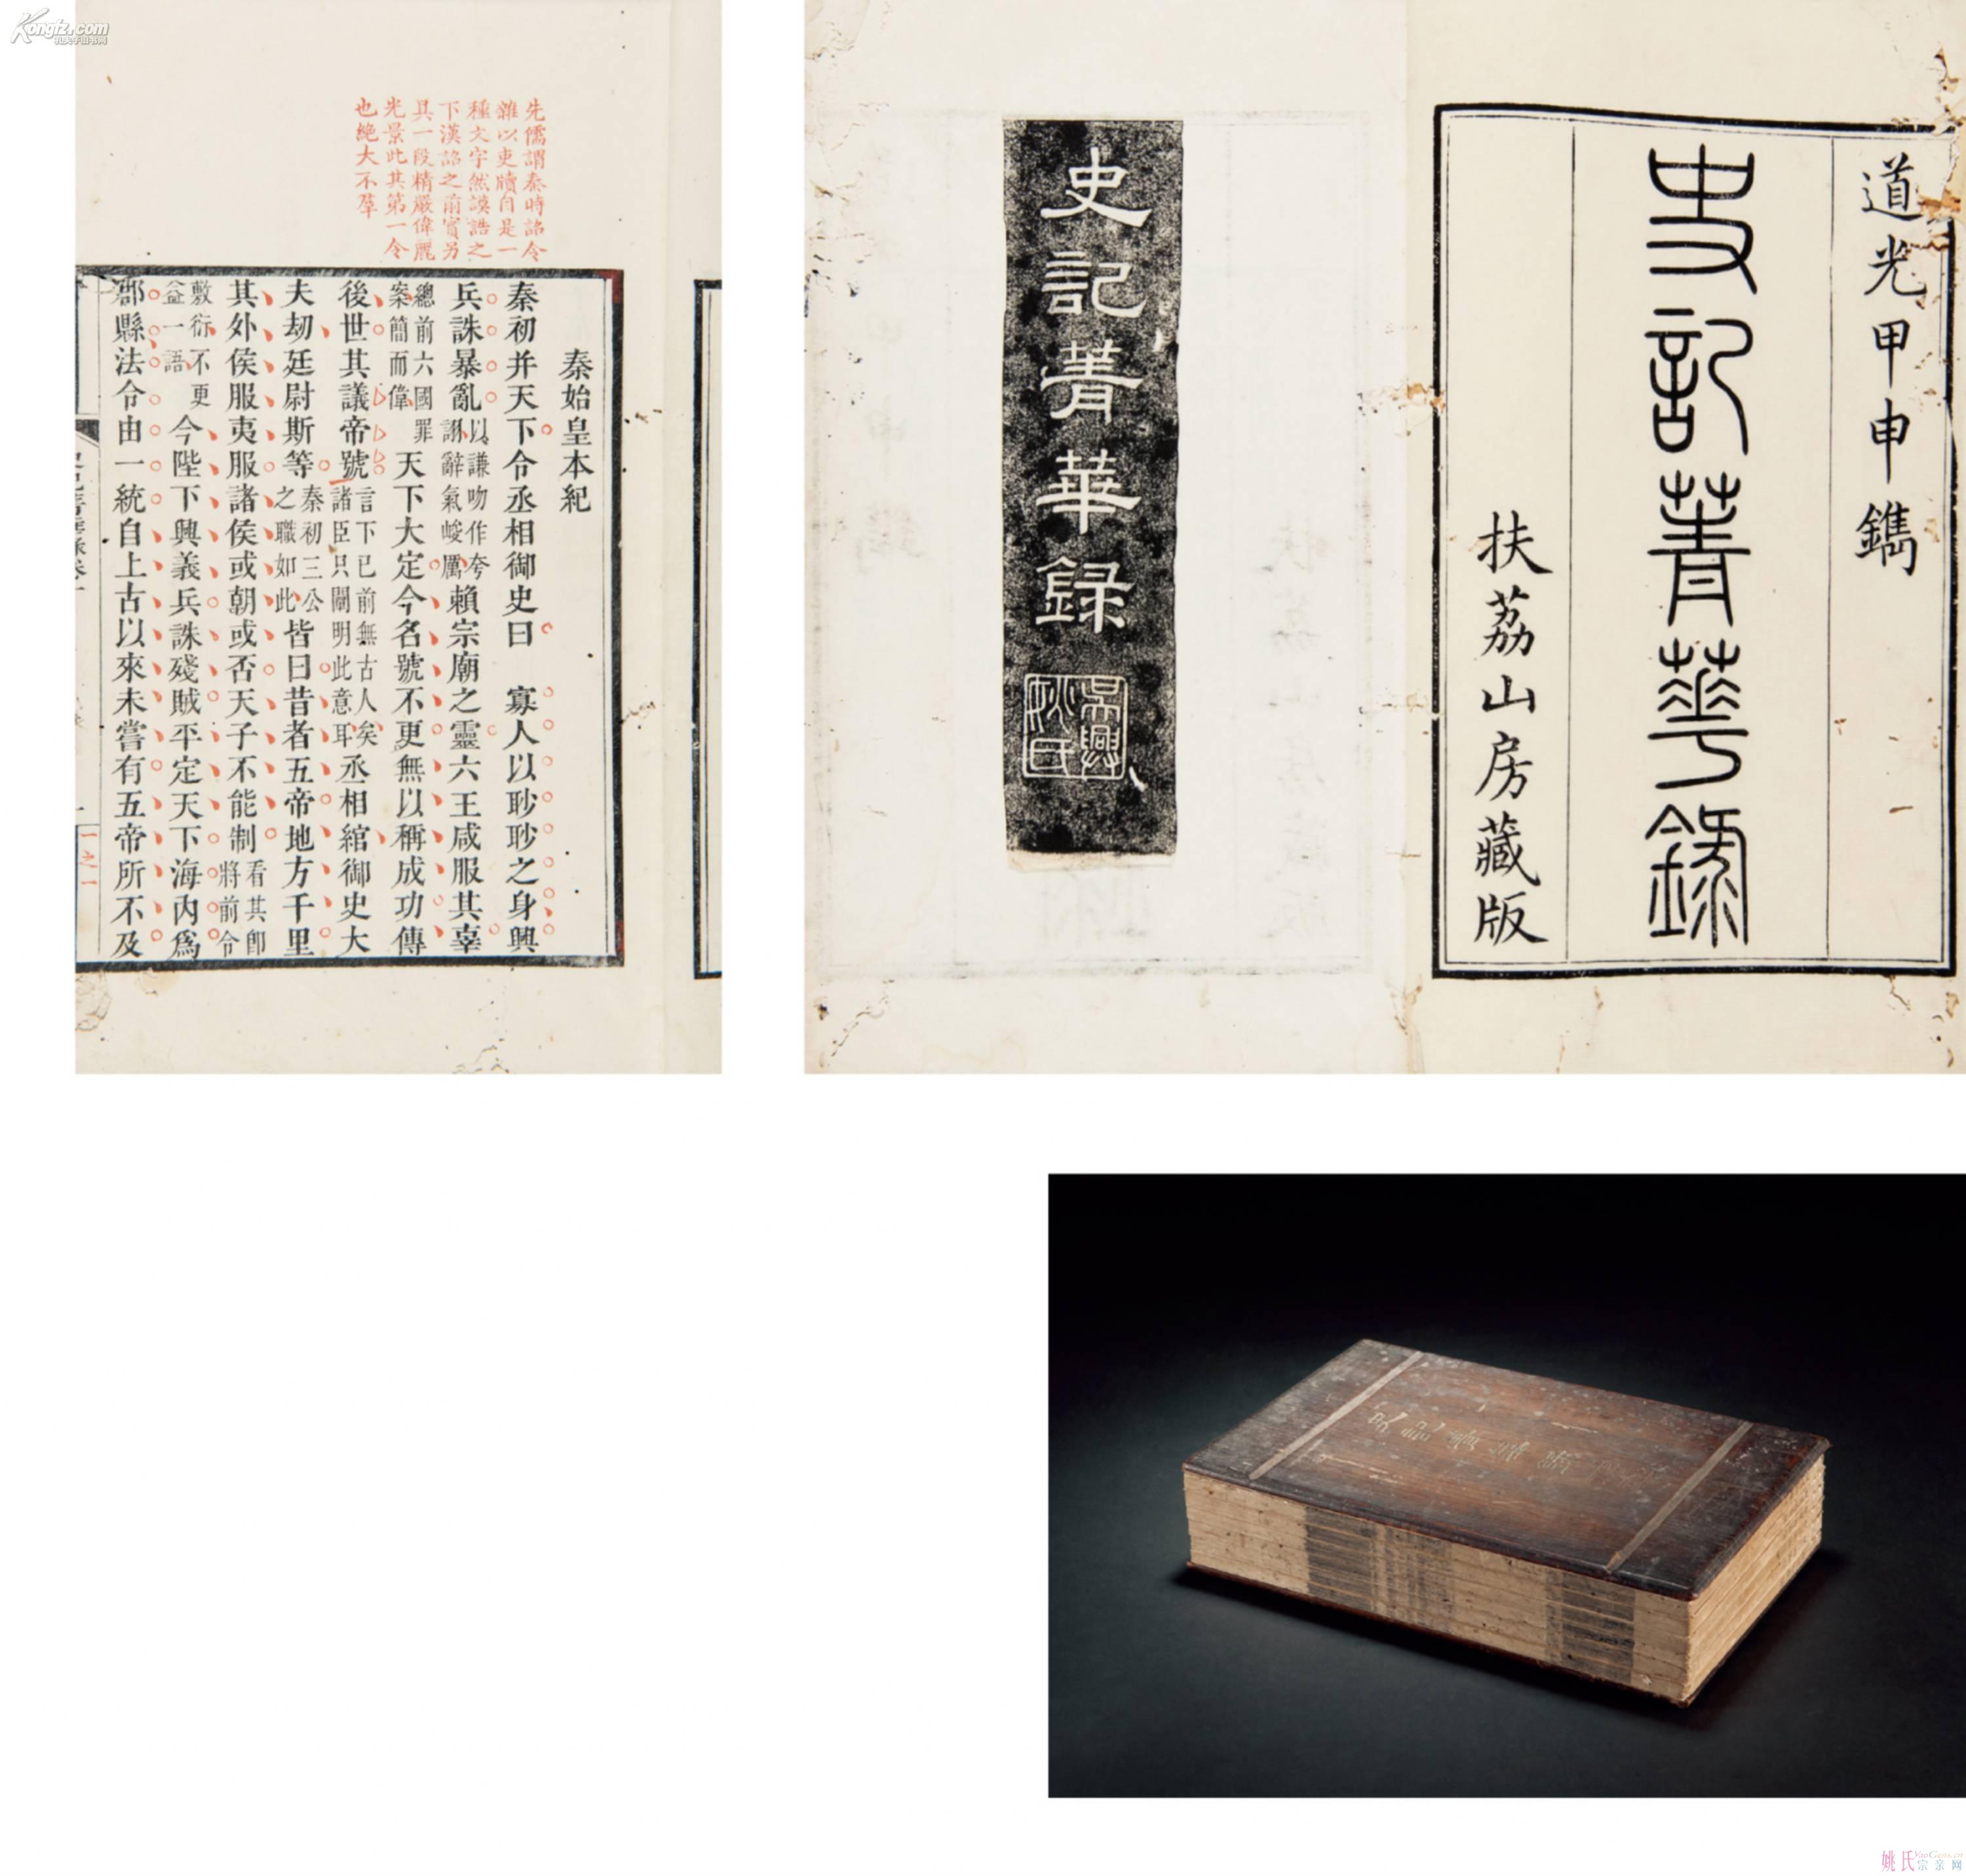 Kongfz.com
孔夫子旧书网
先儒謂秦時詔令
雜以吏牘自是一
種文字然謨誥之
下漢詔之前實另
具一段精嚴偉麗
光景此其第一令
也絕大不羣
秦始皇本紀
秦初并天下令丞相御史曰 寡人以眇眇之身興
兵誅暴亂以謙吻作夸詡辭氣峻厲賴宗廟之靈六王咸服其辜
總前六國罪案簡而偉天下大定今名號不更無以稱成功傳
後世其議帝號言下已前無古人矣諸臣只闡明此意耳丞相綰御史大
夫劫廷尉斯等秦初三公之職如此皆曰昔者五帝地方千里
其外侯服夷服諸侯或朝或否天子不能制看其卽將前令
敷衍不更益一語今陛下興義兵誅殘賊平定天下海內爲
郡縣法令由一統自上古以來未嘗有五帝所不及
一之一
道光甲申鐫
史記菁華錄
扶荔山房藏版
史記菁華録
吳興姚氏
姚氏宗亲网
YaoGens.cn